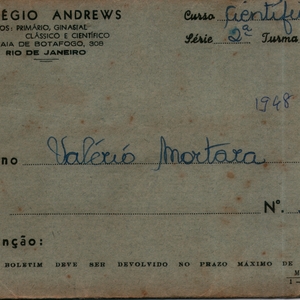 ÉGIO ANDREWS
OS: PRIMÁRIO, GINASIAL
CLÁSSICO E CIENTÍFICO
AIA DE BOTAFOGO, 308
RIO DE JANEIRO
Curso Científi
Série 2ª Turma
1948
no Valério Mortara
Nº.
nção:
BOLETIM DEVE SER DEVOLVIDO NO PRAZO MÁXIMO DE